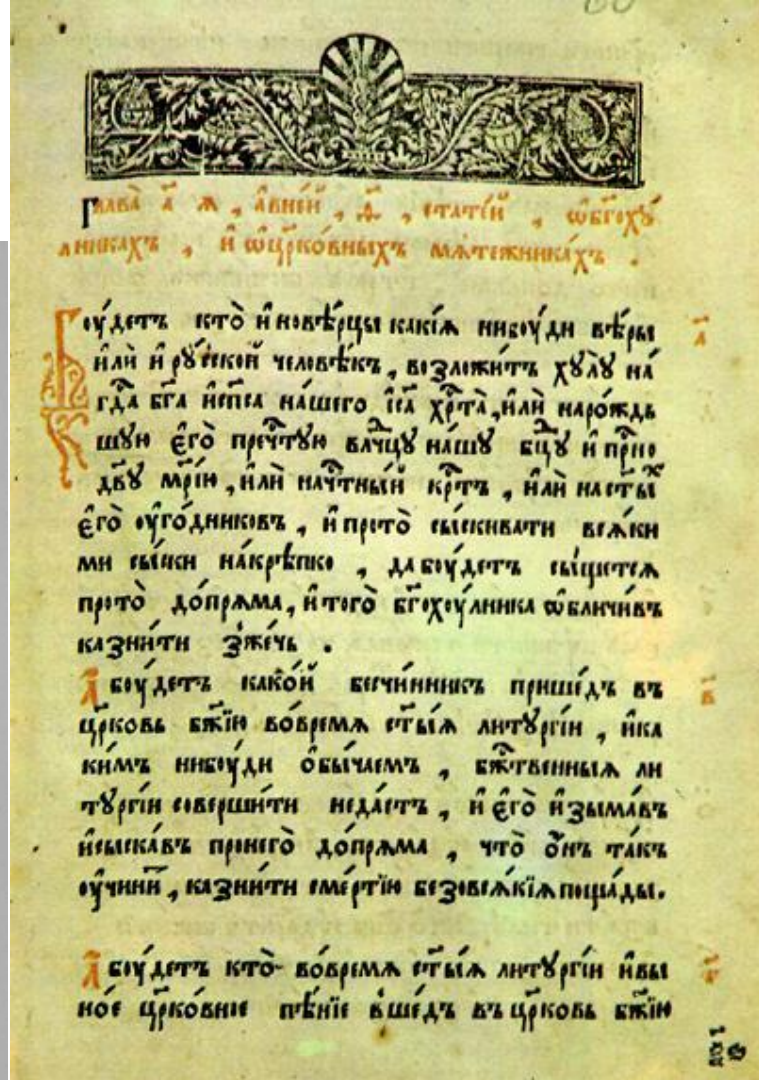 Глава̀ а҃ я , а в ней , ѳ҃ , статей , ѡ бг҃оху́
лникахъ , и ѡ цр҃ко́вныхъ мяте́жникахъ .
Боу́детъ кто̀ и новѣ́рцы какі́я нибоу́ди вѣ́ры
илѝ и рꙋ́ской человѣ́къ , возложи́тъ хꙋлꙋ̀ на́
гдⷭ҇а бг҃а и сп҃са на́шего іс҃а хрⷭ҇та̀ , илѝ наро́ждь
шую є҆го̀ пречⷭ҇тꙋю влⷣчцꙋ на́шꙋ бцⷣꙋ и прⷭ҇но
дв҃ꙋ мр҃і́ю , илѝ на чⷭ҇тны́й крⷭ҇тъ , илѝ на ст҃ы́хъ
є҆го̀ оуго́дниковъ , и про то̀ сы́скивати вся́ки
ми сы́ски на́крѣпко , да боу́детъ сы́щется
про то̀ до́пряма , и того̀ бг҃охоу́лника ѡбличи́въ
казни́ти зже́чь .
А боу́детъ како́й безчи́нникъ прише́дъ въ
цр҃ковь бж҃ію во́время ст҃ы́я литꙋргі́и , и ка
ки́мъ нибоу́ди обы́чаемъ , бжⷭ҇твенныя ли
тꙋргі́и соверши́ти неда́стъ , и є҆го̀ изыма́въ
и сыска́въ про него̀ до́пряма , что̀ о́нъ та́къ
оучини́тъ , казни́ти сме́ртію безо вся́кія поща́ды .
А боу́детъ кто̀ во́время ст҃ы́я литꙋргі́и и в ы
но́е цр҃ко́вное пѣ́ніе вше́дъ въ цр҃ковь бж҃ію
а҃
в҃
г҃